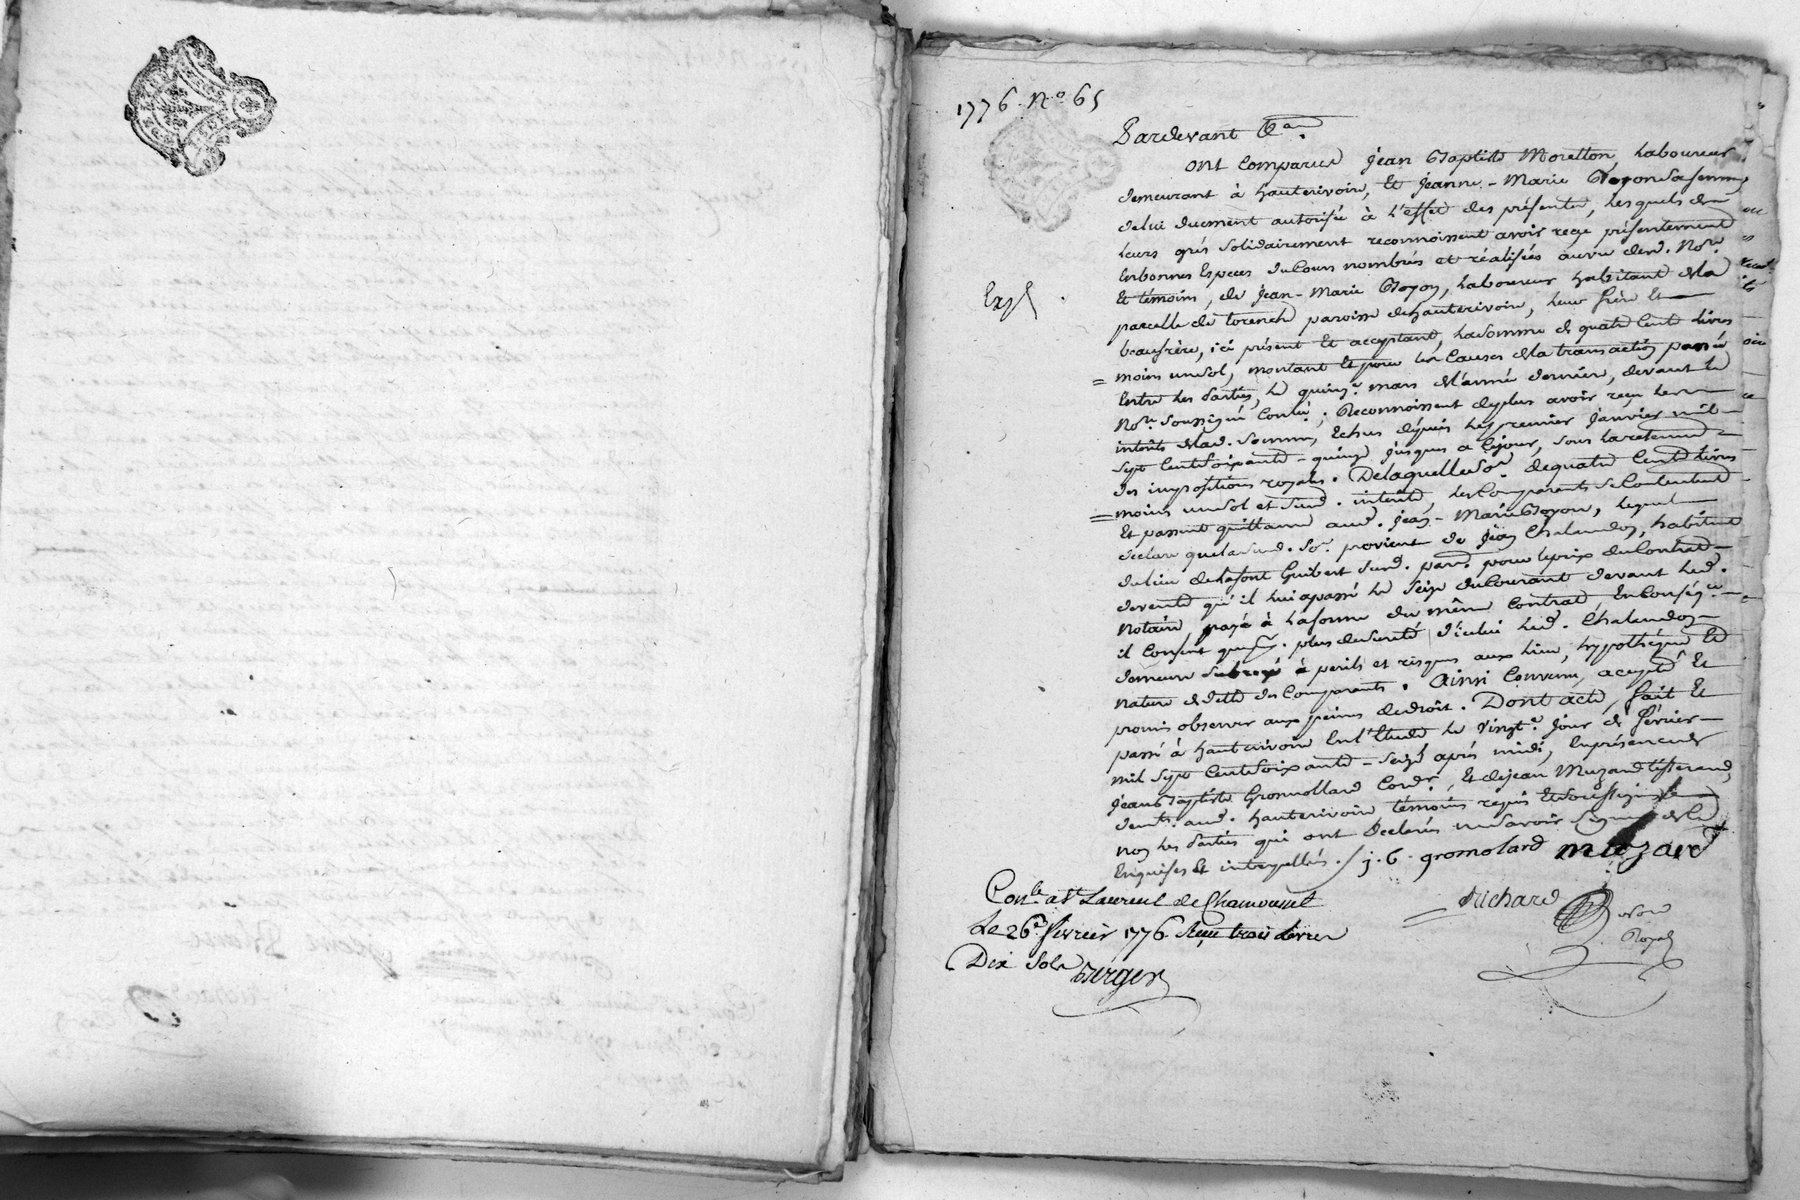 1776. No 65
Pardevant &a.
ont comparus Jean Baptiste Moretton, Laboureur
demeurant à hauterivoire, Et Jeanne-Marie Goyon sa femme
de lui duement autorisée à l'effet des présentes, Lesquels de
Leurs grés solidairement reconnoissent avoir reçu présentement
En bonnes Especes du Cours nombrés et réalisées au vu dud. Nore
Exp.
Et témoins, de Jean-Marie Goyon, Laboureur habitant de la
parcelle de torenche paroisse de hauterivoire, leur frère Et
beaufrère, ici présent Et acceptant, La somme de quatre Cents Livres
moins un sol, montant Et pour les Causes de la transaction passée
Entre Les Parties, Le quinze mars de l'année dernière, devant le
Nore soussigné Contlé; Reconnoissent de plus avoir reçu les
intérêts de lad. somme, Echus depuis Le premier Janvier mil
sept Cent soixante-quinze jusques a Ce jour, sous la retenue
des impositions royales. De laquelle so.e de quatre Cents Livres
moins un sol et susd. intérêts, les Comparants se Contentent
Et passent quittance aud. Jean-Marie Goyon, lequel
declare que la susd. so.e provient de Jean Chalandon, habitant
du lieu de Lafont Guibert susd. par.se pour le prix du Contrat
de vente qu'il lui a passé Le seize du Courant devant Led.
Notaire payé à la forme du même Contrat En Conséq.ce
il Consent que pr. plus de sureté d'icelui Led. Chalandon
demeure subrogé à perils et risques aux lieu, hypothéque Et
nature de dette des Comparants. Ainsi Convenu, accepté Et
promis observer aux peines de droit. Dont acte, fait Et
passé à hauterivoire En l'Etude Le vingte jour de février
mil sept Cent soixante-seize après midi, En présence de
Jean Baptiste Gromollard Cord.r, Et de Jean Muzard tisserand,
demts. aud. hauterivoire témoins requis Et soussignés
non Les Parties qui ont Déclarés ne savoir signer de Ce
Enquises Et interpellés. / j. b. gromolard muzard
Richard
Nore
Royal
Conle at Laurent de Chamousset
Le 26e fevrier 1776. Reçu trois Livres
Dix sols Berger